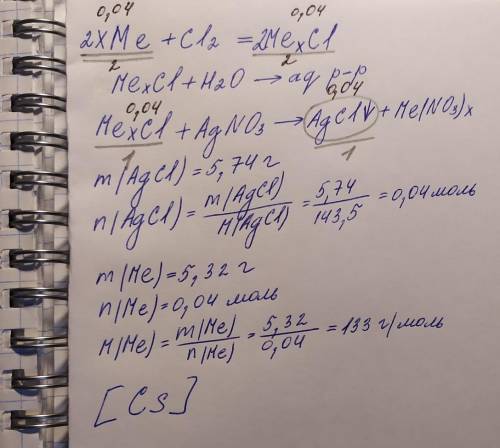 0,04 0,04
2xMe + Cl2 = 2MexCl
2 2
MexCl + H2O → aq р-р
0,04 0,04
MexCl + AgNO3 → AgCl↓ + Me(NO3)x
1 1
m(AgCl) = 5,74 г
n(AgCl) = m(AgCl)/M(AgCl) = 5,74/143,5 = 0,04 моль
m(Me) = 5,32 г
n(Me) = 0,04 моль
M(Me) = m(Me)/n(Me) = 5,32/0,04 = 133 г/моль
[Cs]